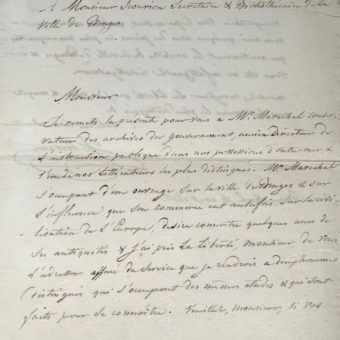 A Monsieur Scourion Secretaire & Bibliothecaire de la
Ville de Bruges
Monsieur
Je remets la presente pour vous à Mr. Marechal conser-
vateur des archives du gouvernement, ancien Directeur de
l'instruction publique dans nos possessions d'outre-mer &
l'un de nos litterateurs les plus distingués. Mr. Marechal
s'occupant d'un ouvrage sur la ville de Bruges & sur
l'influence que son commerce eut autrefois sur la civi-
lisation de l'Europe, desire connoitre quelques unes de
ses antiquités & j'ai pris la liberté, monsieur de vous
l'adresser assuré du service que je rendrois a deux hommes
distingués qui s'occupent des memes etudes & qui sont
faits pour se connoitre. Veuillez, Monsieur, si vos